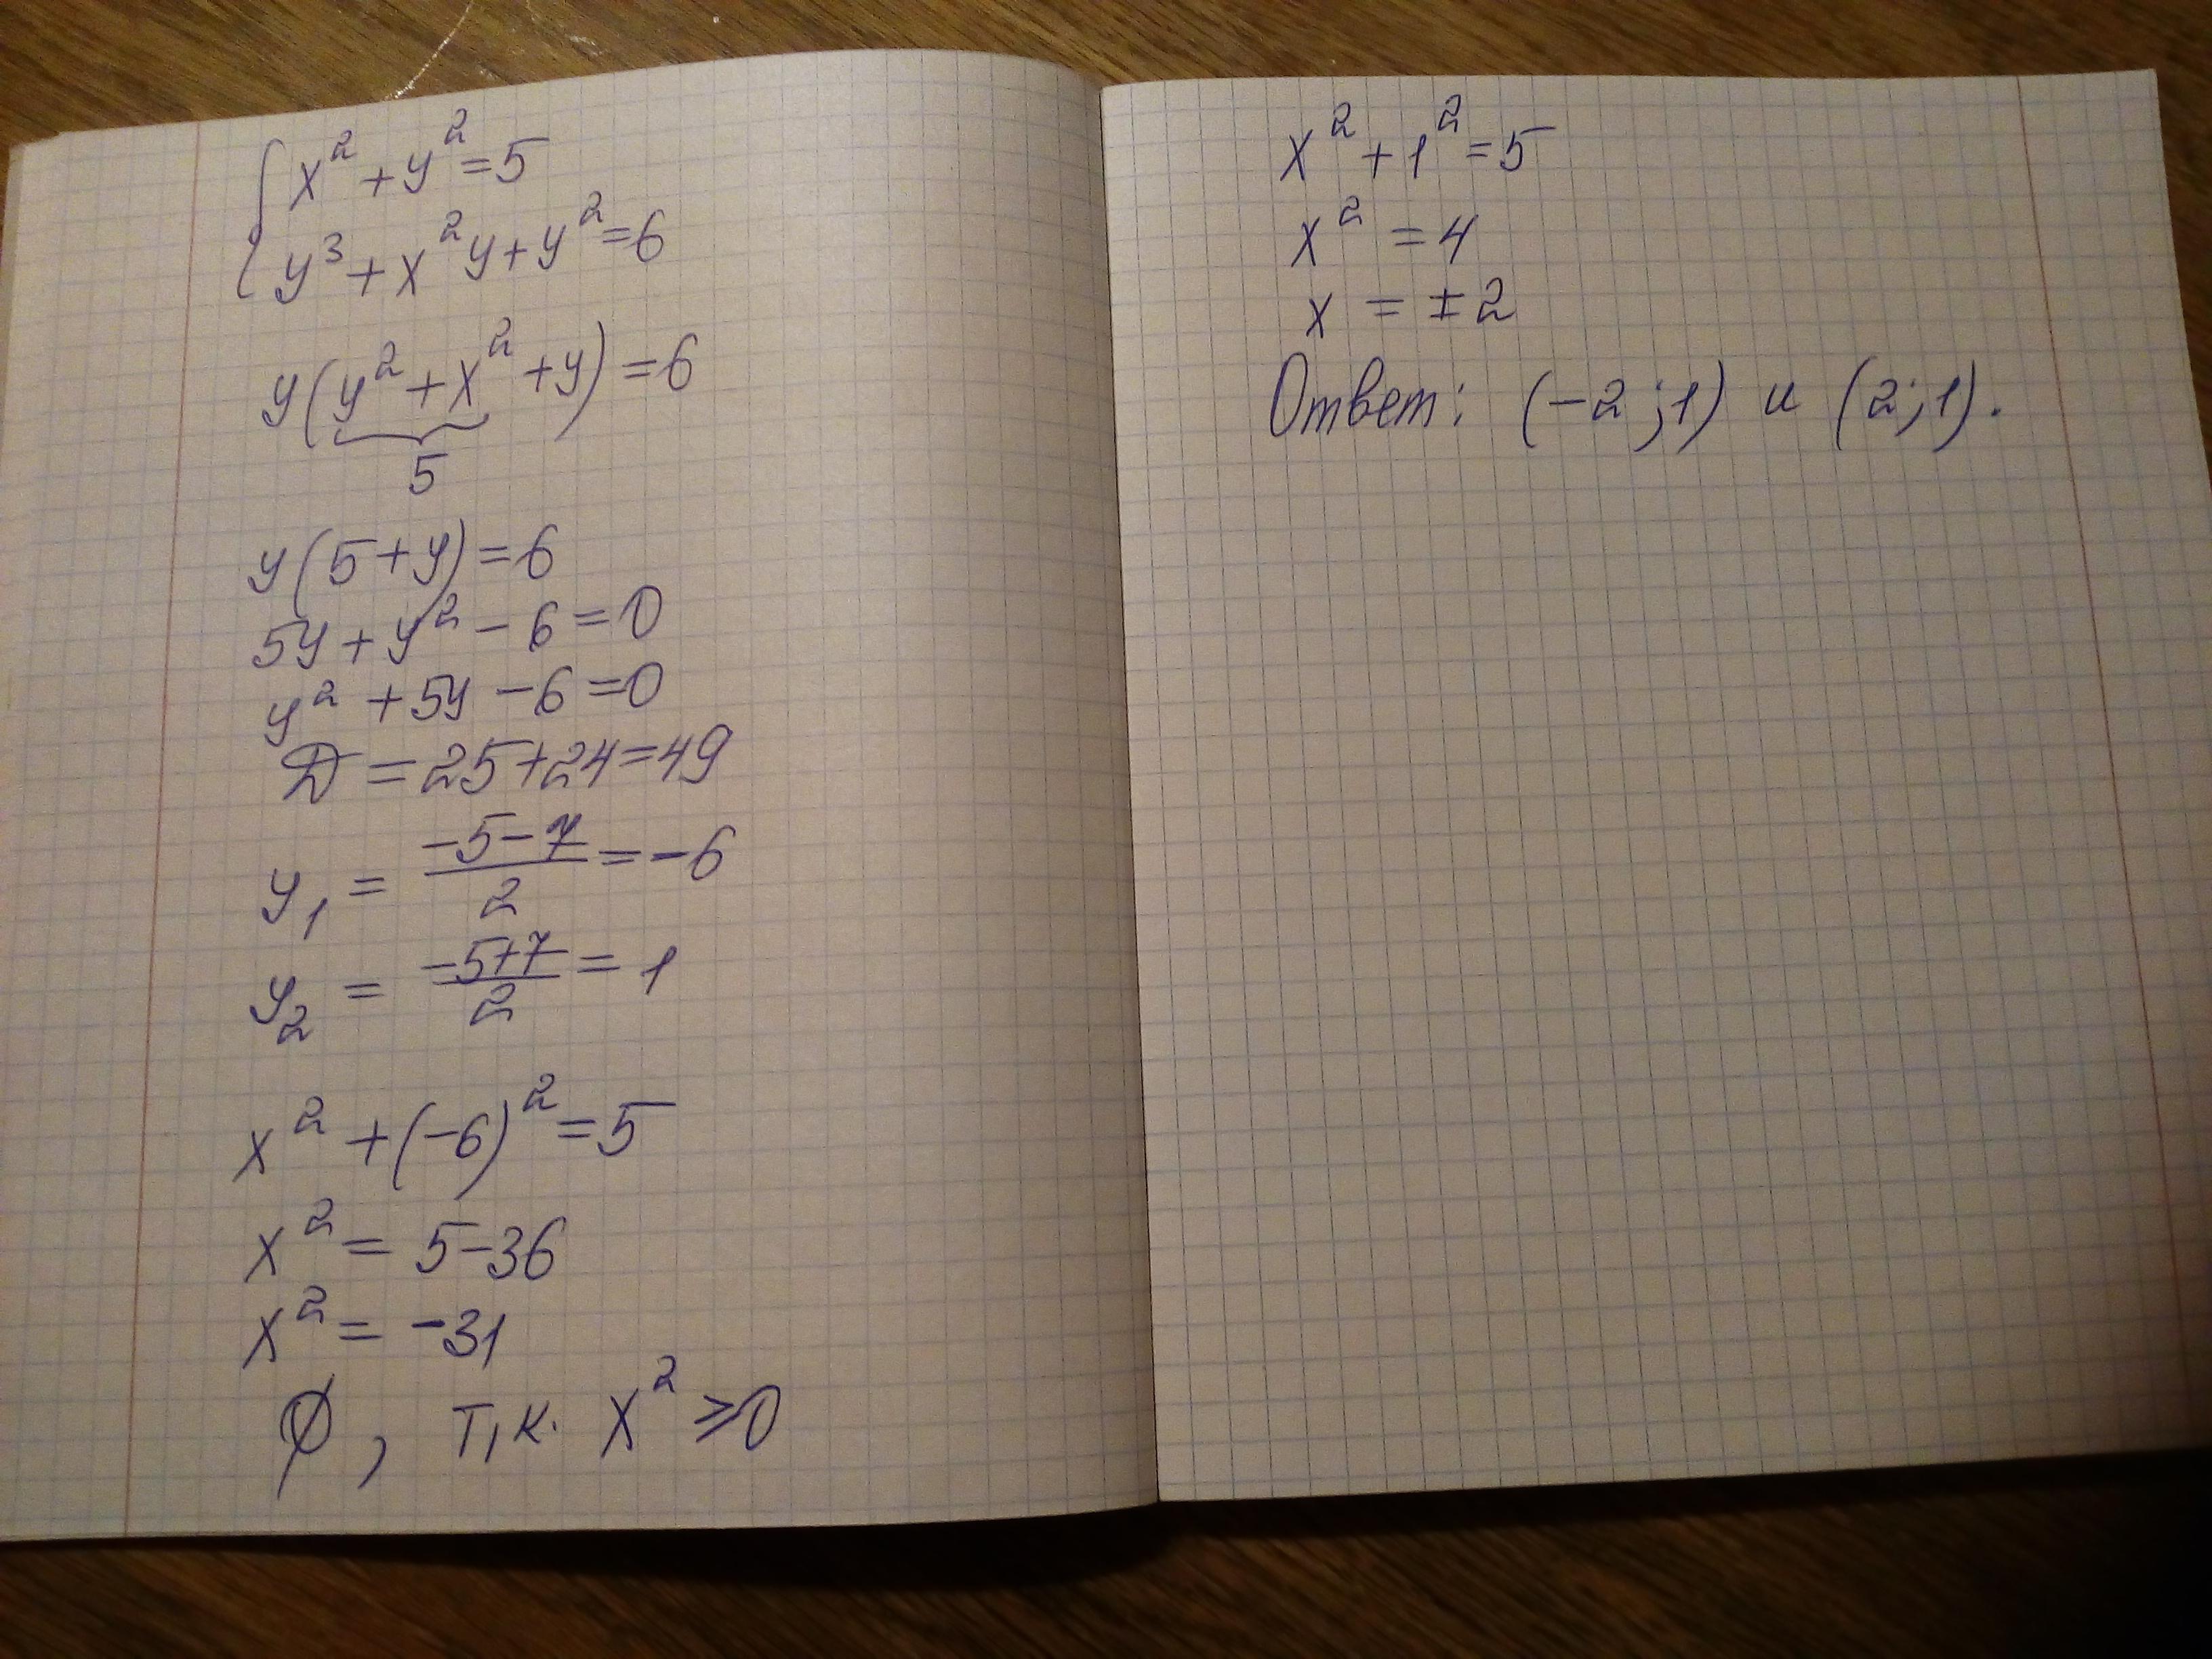 { x² + y² = 5
y³ + x²y + y² = 6
y(y² + x² + y) = 6
5
y(5 + y) = 6
5y + y² - 6 = 0
y² + 5y - 6 = 0
Д = 25 + 24 = 49
y₁ = (-5 - 7)/2 = -6
y₂ = (-5 + 7)/2 = 1
x² + (-6)² = 5
x² = 5 - 36
x² = -31
∅, т.к. x² ≥ 0
x² + 1² = 5
x² = 4
x = ±2
Ответ: (-2; 1) и (2; 1).